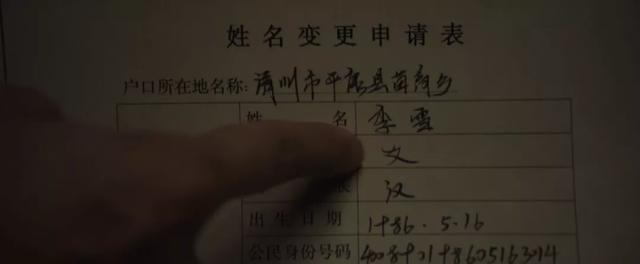 姓名变更申请表
户口所在地名称: 清川市平县乡
姓 名 李雪
女
汉
出生日期 1986.5.16
公民身份号码